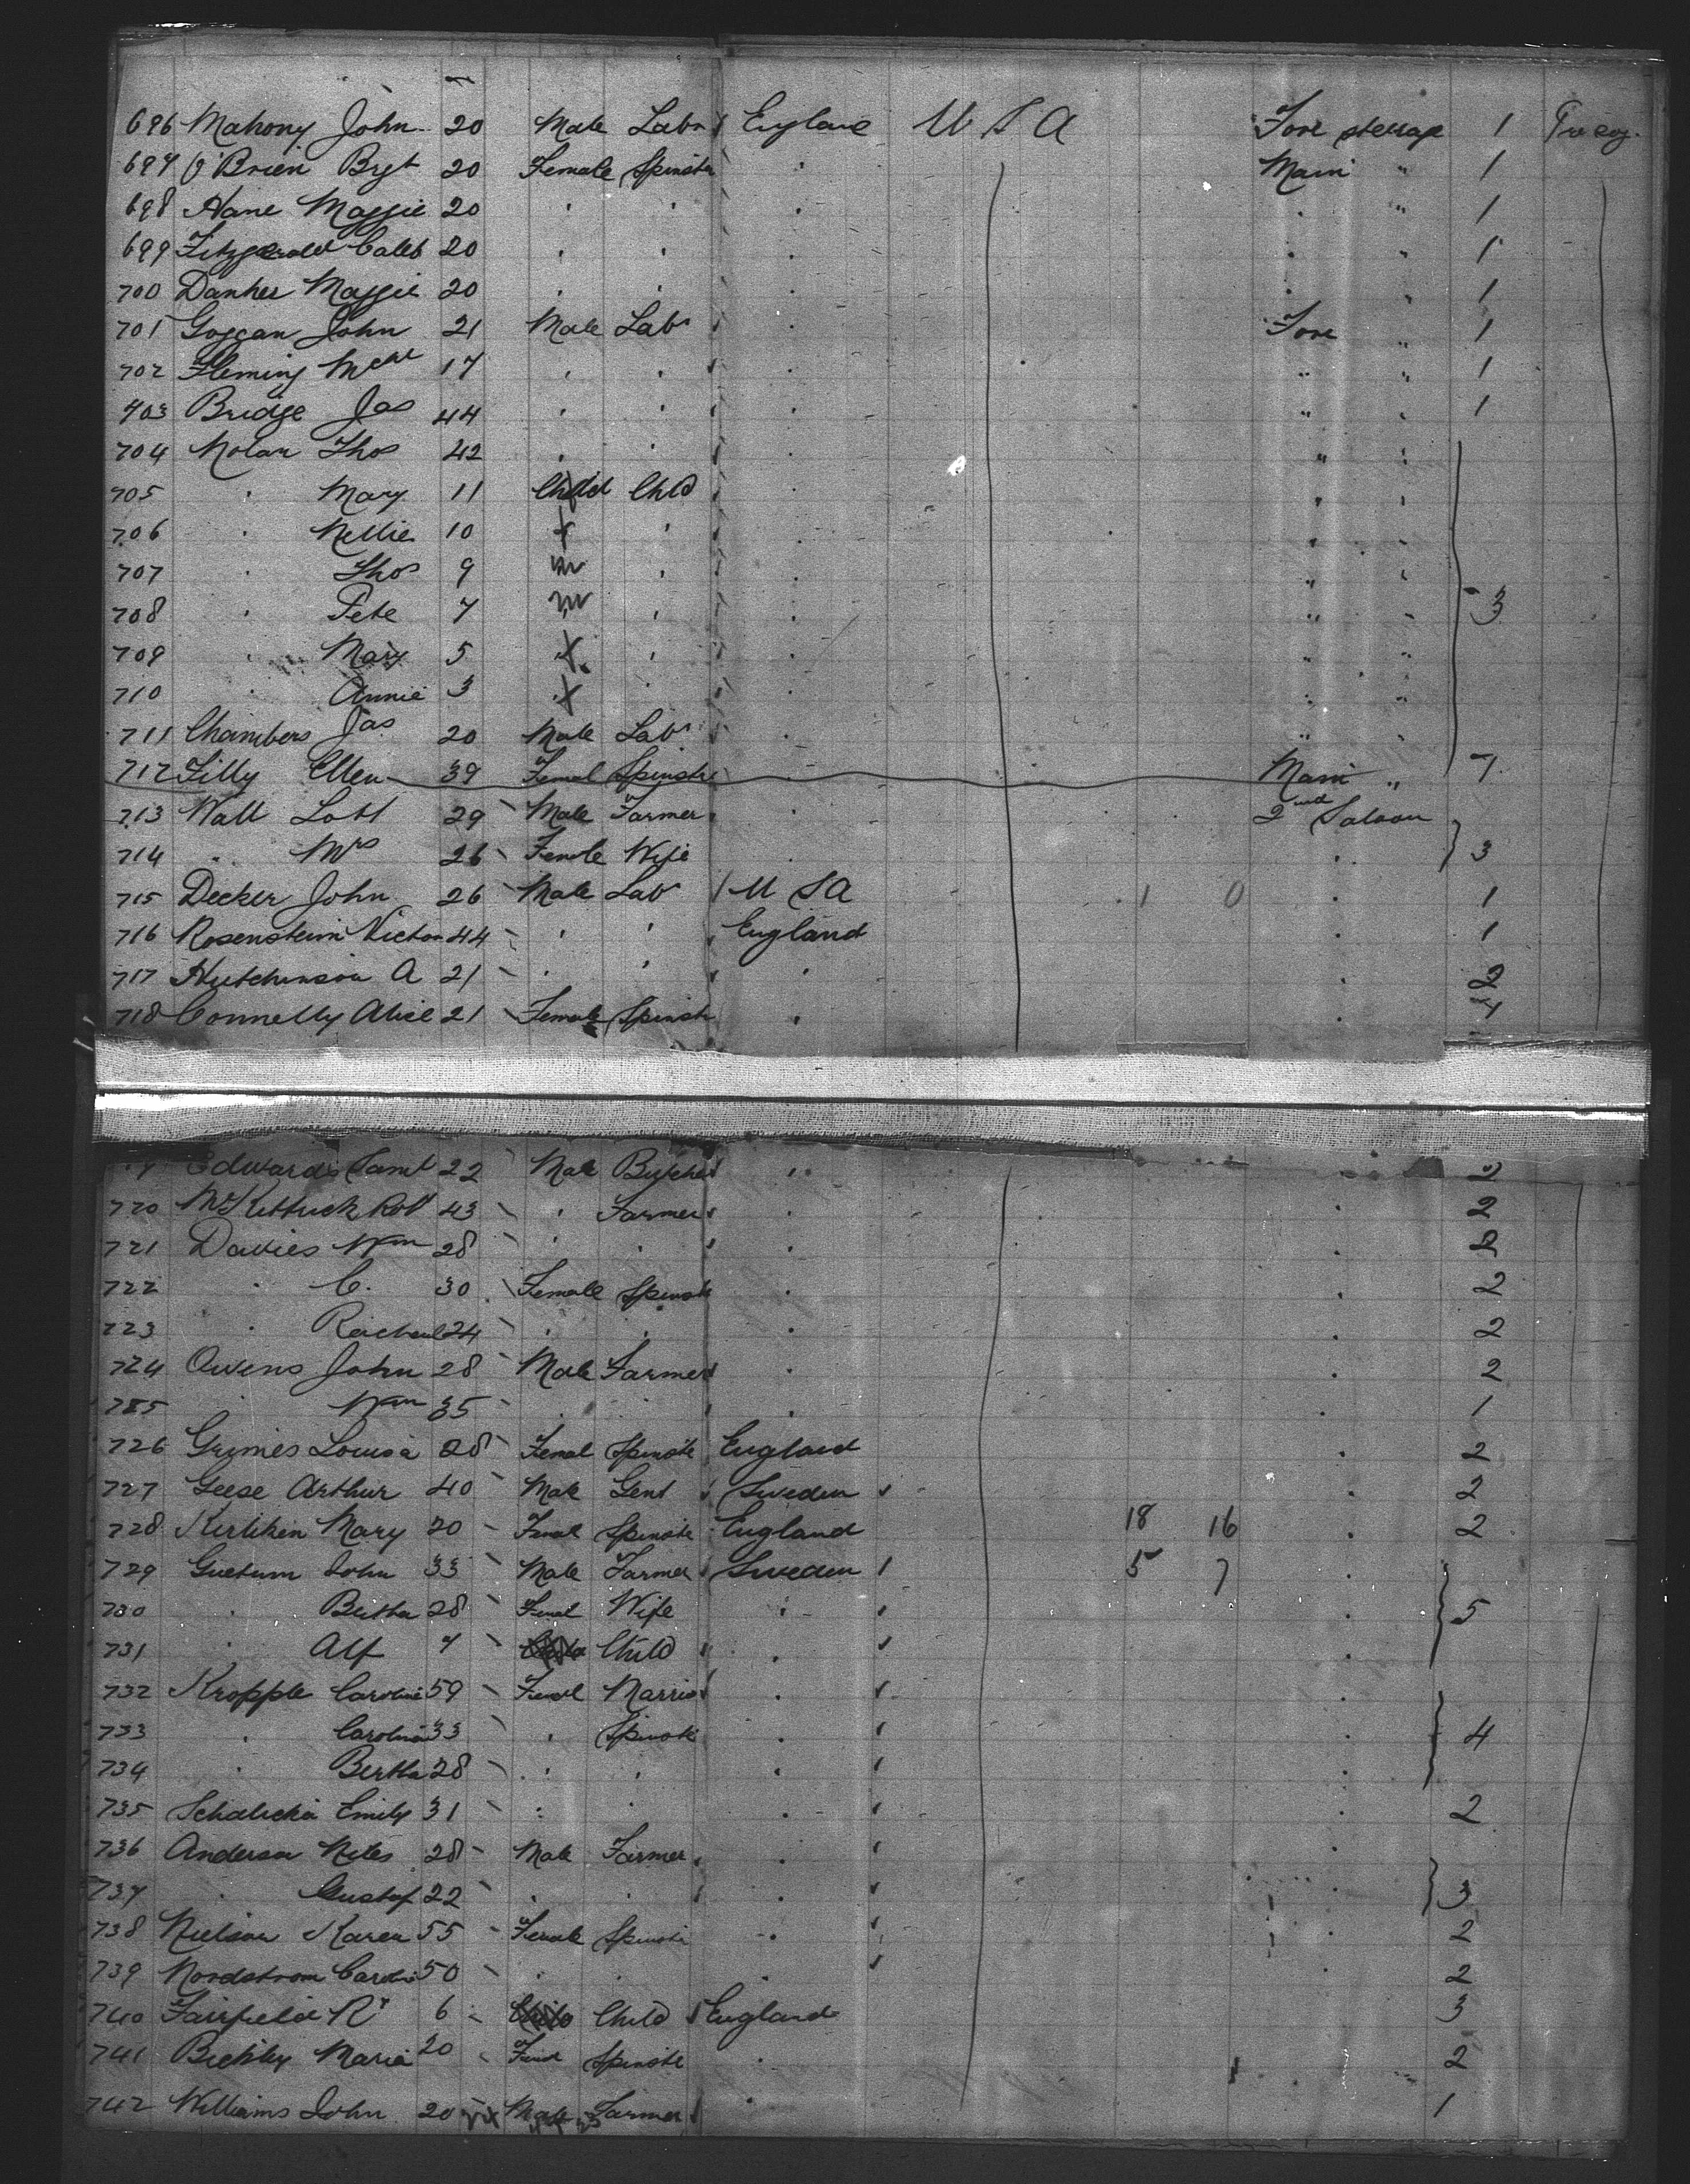 696 Mahony John 20 Male Labr England U S A Fore steerage 1
697 O'Brien Bgt 20 Female Spinster " Main " 1
698 Hane Maggie 20 " " " " " 1
699 Fitzgerald Cath 20 " " " " " 1
700 Danher Maggie 20 " " " " " 1
701 Goggan John 21 Male Labr " Fore " 1
702 Fleming Mchl 17 " " " " " 1
703 Bridge Jas 44 " " " " " 1
704 Nolan Thos 42 " " " " "
705 " Mary 11 Child Chld " " "
706 " Nellie 10 f " " " "
707 " Thos 9 m " " " "
708 " Pete 7 m " " " " 3
709 " Mary 5 f " " " "
710 " Annie 3 f " " " "
711 Chambers Jas 20 Male Labr " " "
712 Tilly Ellen 39 Femal Spinster Main " 1
713 Wall Robt 29 Male Farmer " 2nd Saloon
714 " Mrs 26 Female Wife " " 3
715 Decker John 26 Male Labr U S A 1 0 " 1
716 Rosenstein Victor 44 " " England " 1
717 Hutchinson A 21 " " " " 2
718 Connelly Alice 21 Female Spinstr " " 1
Edwards Saml 22 Male Butcher " " 2
720 McKittrick Robt 43 " Farmer " " 2
721 Davies Wm 28 " " " " 2
722 " C. 30 Female Spinstr " " 2
723 " Rachael 24 " " " " 2
724 Owens John 28 Male Farmer " " 2
725 " Wm 35 " " " " 1
726 Grymes Louisa 28 Femal Spinste England " 2
727 Geese Arthur 40 Male Gent Sweden " 2
728 Kirliken Mary 20 Femal Spinste England 18 16 " 2
729 Guetum John 33 Male Farmer Sweden 5 7 "
730 " Bertha 28 Femal Wife " " 5
731 " Alf 7 Child " "
732 Kropple Caroline 59 Femal Married " "
733 " Carolina 33 " Spinste " " 4
734 " Bertha 28 " " " "
735 Schalicka Emily 31 " " " " 2
736 Anderson Niles 28 Male Farmer " "
737 " Gustof 22 " " " " 3
738 Nielson Karen 55 Female Spinste " " 2
739 Nordstrom Carolin 50 " " " 2
740 Fairfield Rt 6 Child England 3
741 Bickley Maria 20 Femal Spinste " 2
742 Williams John 20 Male Farmer " 1